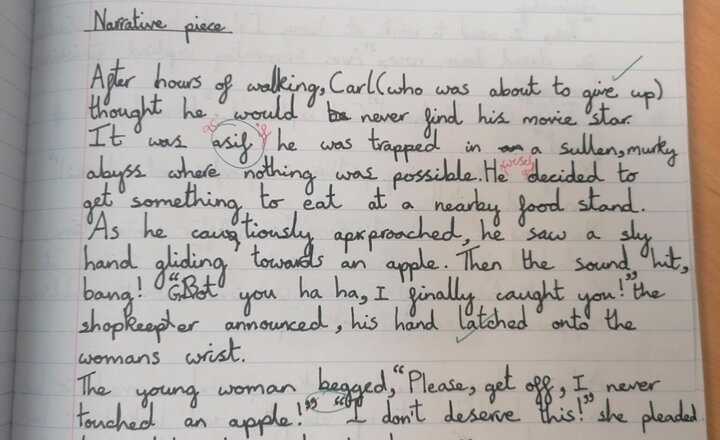 Narrative piece
After hours of walking, Carl (who was about to give up)
thought he would never find his movie star.
as if
It was asif he was trapped in a sullen, murky
wisely
abyss where nothing was possible. He decided to
get something to eat at a nearby food stand.
As he cautiously approached, he saw a sly
hand gliding towards an apple. Then the sound hit,
bang! "Got you ha ha, I finally caught you!" the
shopkeepter announced, his hand latched onto the
womans wrist.
The young woman begged, "Please, get off, I never
touched an apple!" "I don't deserve this!" she pleaded.